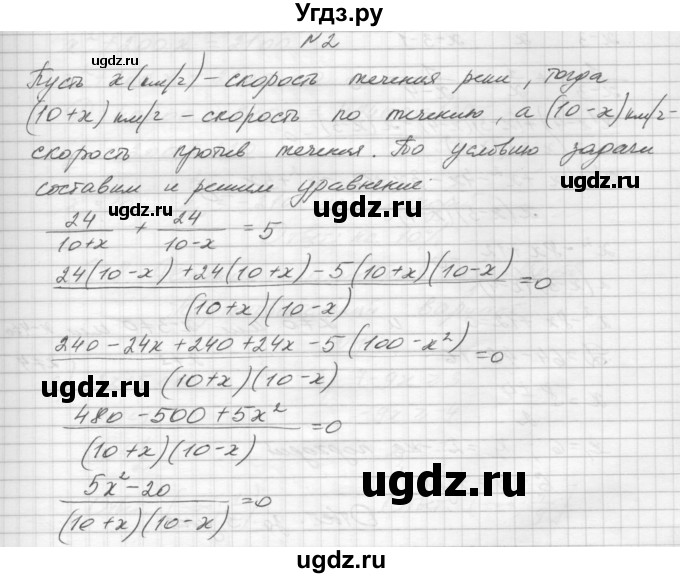 Угдз.ру
№2
Пусть x(км/ч) – скорость течения реки, тогда
(10+x) км/ч – скорость по течению, а (10-x) км/ч-
скорость против течения. По условию задачи
составим и решим уравнение:
24/(10+x) + 24/(10-x) = 5
(24(10-x) + 24(10+x) - 5(10+x)(10-x))/((10+x)(10-x)) = 0
(240 - 24x + 240 + 24x - 5(100-x²))/((10+x)(10-x)) = 0
(480 - 500 + 5x²)/((10+x)(10-x)) = 0
(5x² - 20)/((10+x)(10-x)) = 0
ugdz.ru
ugdz.ru
ugdz.ru
ugdz.ru
ugdz.ru
ugdz.ru
ugdz.ru
ugdz.ru
ugdz.ru
ugdz.ru